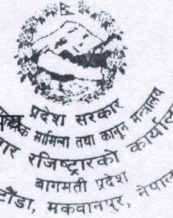 प्रदेश सरकार
मामिला तथा कानून मन्त्रालय
रजिष्ट्रारको कार्यालय
बागमती प्रदेश
मकवानपुर, नेपाल